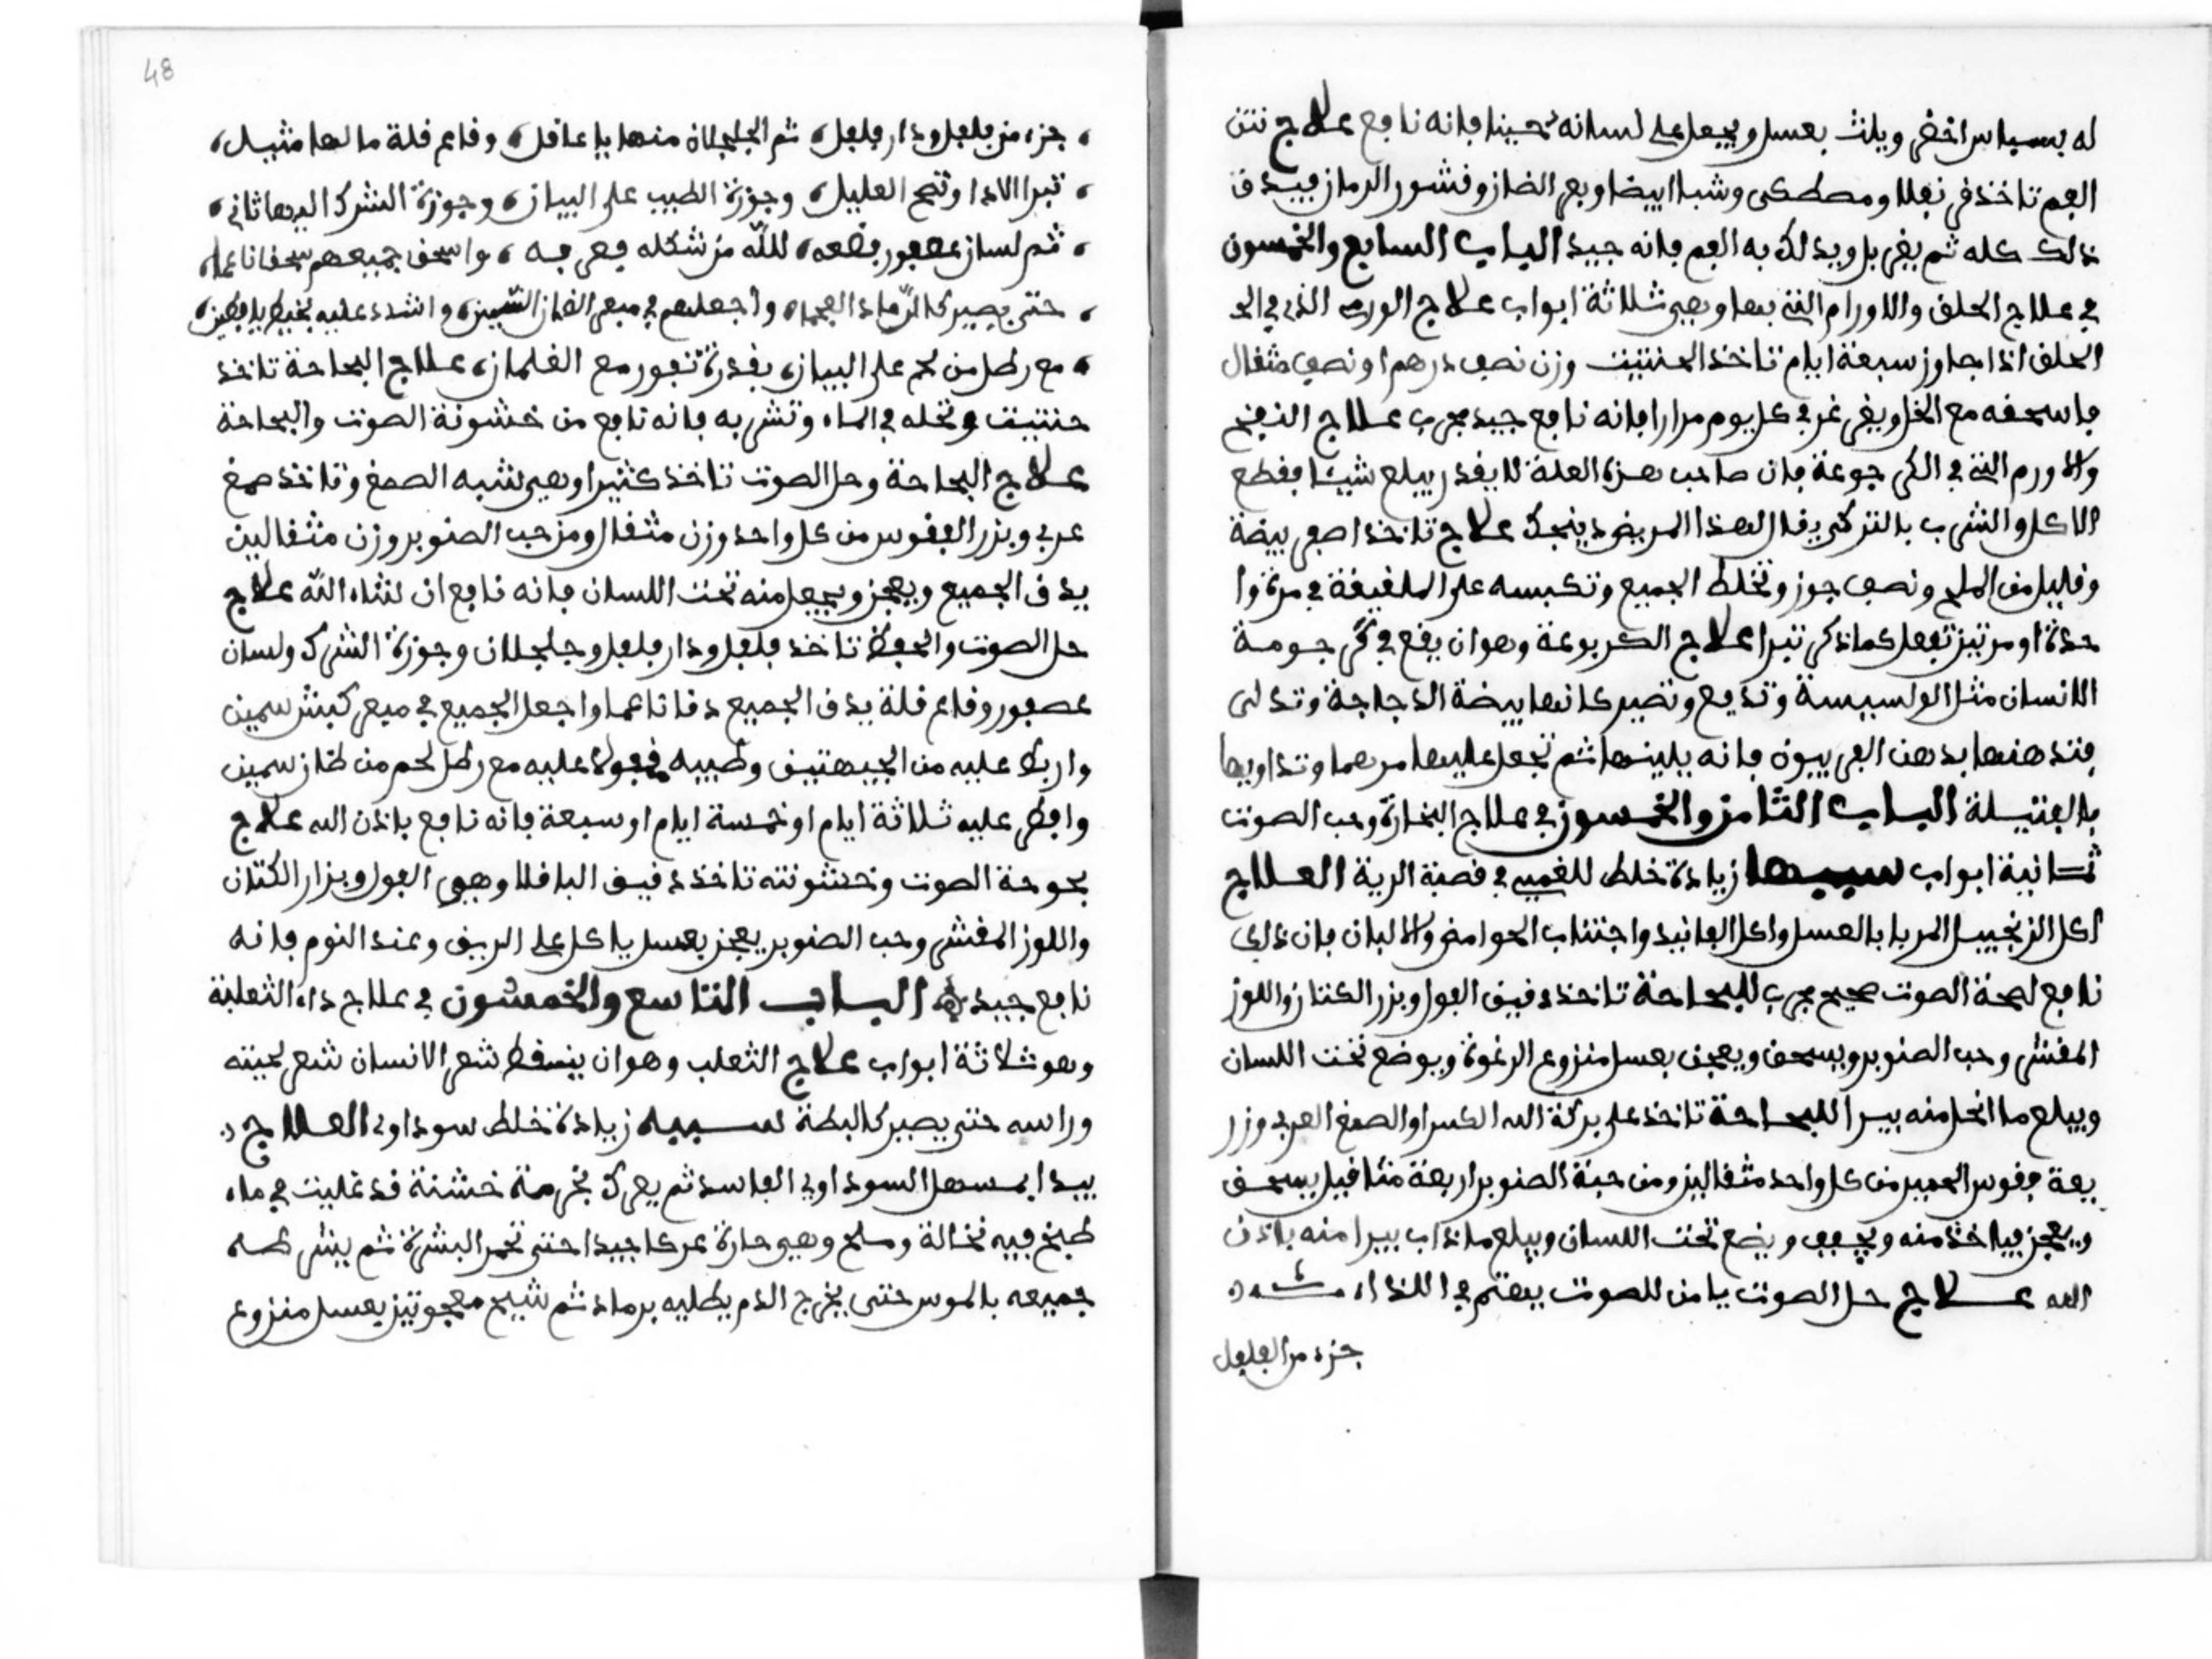 له بسباس اخضر ويلث بعسل ويجعل على لسانه تحسينا فانه نافع علاج نتن
الفم تاخذ قرنفلا ومصطكى وشبا ابيضا وبعر الضان وقشور الرمان فيدق
ذلك كله ثم يغربل ويدلك به الفم فانه جيد الباب السابع والخمسون
في علاج الحلق والاورام التي بها وهي ثلاثة ابواب علاج الورم الذي في الحـ
الحلق اذا جاوز سبعة ايام تاخذ الحنتيت وزن نصف درهم او نصف مثقال
فاسحقه مع الخل ويغرغر في كل يوم مرارا فانه نافع جيد مجرب علاج الذبح
والاورم التي في الكرجوعة فان صاحب هذه العلة لا يقدر يبلع شيئا فقطع
الاكل والشرب بالترك يقال لهذا المريض ذبنجك علاج تاخذ اصفر بيضة
وقليل من الملح ونصف جوز وتخلط الجميع وتكبسه على الملغيغة في مرة وا
حدة او مرتين تفعل كما ذكر تبرا علاج الكربوعة وهو ان يقع في كرجومة
الانسان مثل الولسيسة وتذيع وتصير كانها بيضة الدجاجة وتدلى
فتدهنها بدهن الفربيون فانه يلينها ثم تجعل عليها مرهما وتداويها
بالفتيلة الباب الثامن والخمسون في علاج البحارة وحب الصوت
ثمانية ابواب سببها زيادة خلط للغمي في قصبة الرية العلاج
اكل الزنجبيل المربا بالعسل واكل الفانيد واجتناب الحوامض والالبان فان ذلك
نافع لصحة الصوت صحيح مجرب للبحاحة تاخذ دقيق الفول وبزر الكتان واللوز
المقشر وحب الصنوبر ويسحق ويعجن بعسل منزوع الرغوة ويوضع تحت اللسان
ويبلع ما انحل منه يبرا للبحاحة تاخذ على بركة الله الكسرا والصمغ العربي وزر
يعة فقوس الحمير من كل واحد مثقالين ومن حبة الصنوبر اربعة مثاقيل يسحق
ويعجن فياخذ منه ويجفف ويضع تحت اللسان ويبلع ما ذاب يبرا منه باذن
الله علاج حل الصوت يا من للصوت يهتم في اللذاء
جزء من الفلفل
48
، جزء من فلفل ودار فلفل، ثم الجلجلان منها يا عاقل، وقاع قلة ما لها مثيل،
، تبرا الاذا وتصح العليل، وجوزة الطيب على البيان، وجوزة الشرك اليها ثاني،
، ثم لسان عصفور فضعه، لله من شكله فع فيه، واسحق جميعهم سحقا ناعما،
، حتى يصير كالرماد الفحماء، واجعلهم في مبعر الضان السمين، واشدد عليه بخيط يا فطين،
، مع رطل من لحم على البيان، بقدرة تفور مع الغلمان، علاج البحاحة تاخذ
حنتيت وتحله في الماء وتشربه فانه نافع من خشونة الصوت والبحاحة
علاج البحاحة وحل الصوت تاخذ كثيرا وهي تشبه الصمغ وتاخذ صمغ
عربي وبزر الفقوس من كل واحد وزن مثقال ومن حب الصنوبر وزن مثقالين
يدق الجميع ويعجن ويجعل منه تحت اللسان فانه نافع ان شاء الله علاج
حل الصوت والحفظ تاخذ فلفل ودار فلفل وجلجلان وجوزة الشرك ولسان
عصفور وقاع قلة يدق الجميع دقا ناعما واجعل الجميع في مبعر كبش سمين
واربط عليه من الجيهتين وطيبه فعوله عليه مع رطل لحم من ضان سمين
وافطر عليه ثلاثة ايام او خمسة ايام او سبعة فانه نافع باذن الله علاج
بحوحة الصوت وخشونته تاخذ دقيق الباقلا وهي الفول وبزار الكتان
واللوز المقشر وحب الصنوبر يعجن بعسل ياكل على الريق وعند النوم فانه
نافع جيد الباب التاسع والخمسون في علاج داء الثعلبة
وهو ثلاثة ابواب علاج الثعلب وهو ان يسقط شعر الانسان شعر لحيته
وراسه حتى يصير كالبطة سببه زيادة خلط سوداوي العلاج
يبدا بمسهل السوداوي الفاسد ثم يعرك بخرمة خشنة قد غليت في ماء
طبخ فيه نخالة وملح وهي حارة عركا جيدا حتى تحمر البشرة ثم يشرطه
جميعه بالموس حتى يخرج الدم يطليه برماد ثم شيح معجونين بعسل منزوع